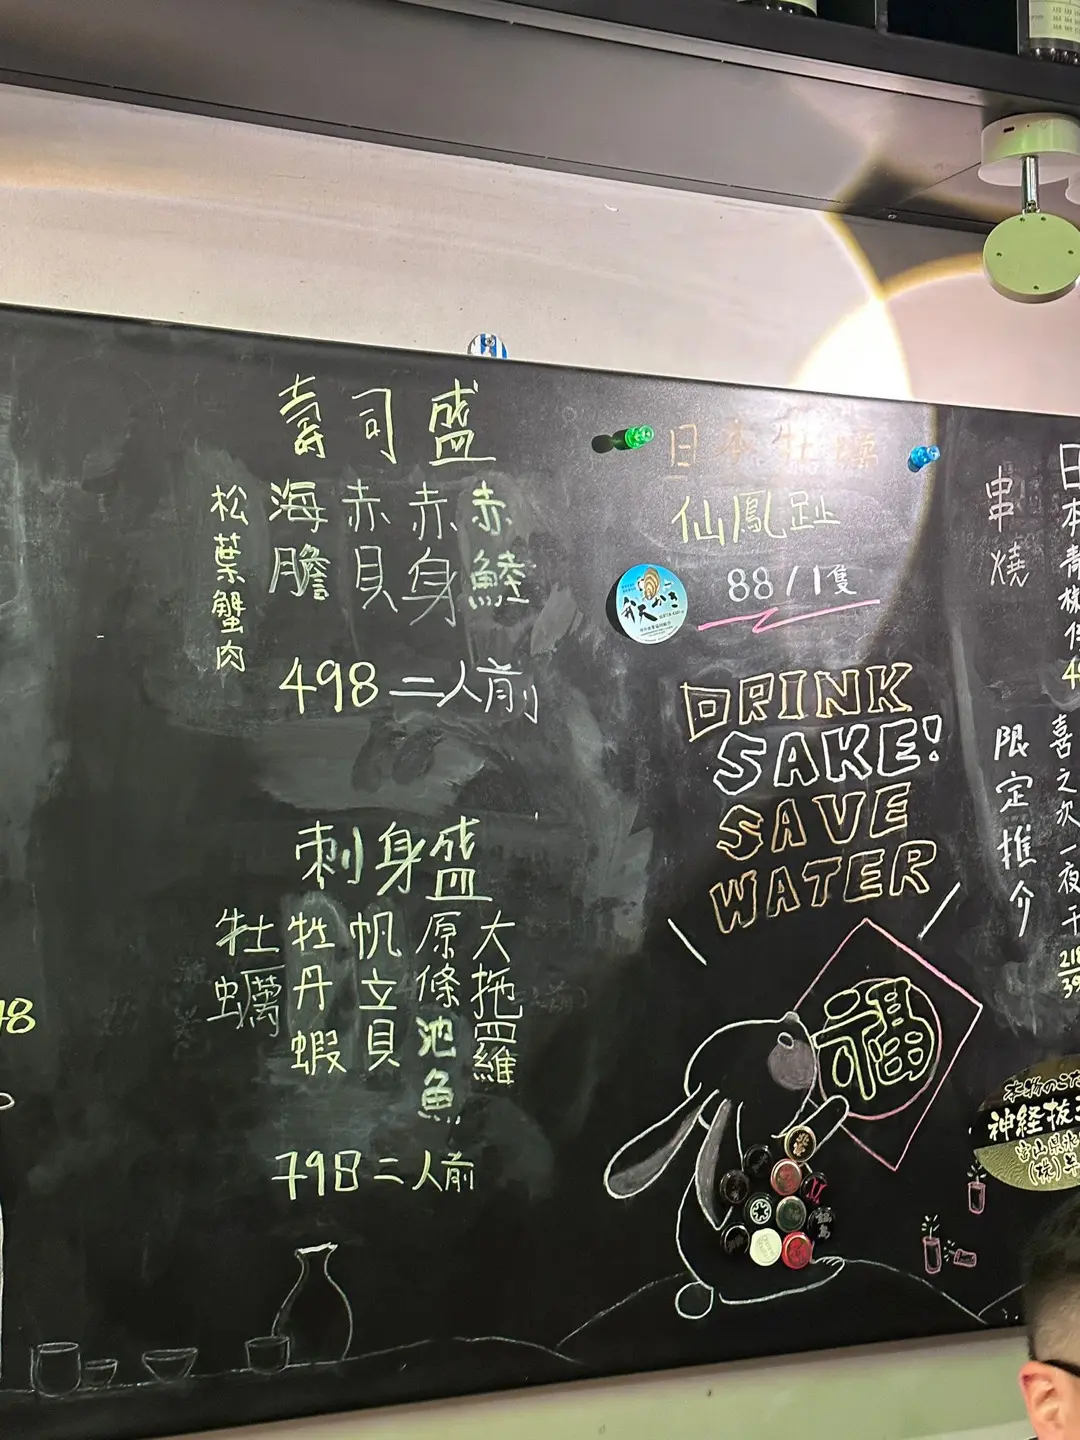 壽司盛
赤鯥
赤身
赤貝
海膽
松葉蟹肉
498 二人前
刺身盛
大拖羅
原條池魚
帆立貝
牡丹蝦
牡蠣
798 二人前
48
日本牡蠣
仙鳳趾
88/1隻
弁天かき
DRINK
SAKE!
SAVE
WATER
福
串燒
限定推介
日本青
喜之次一夜干
218
神経抜